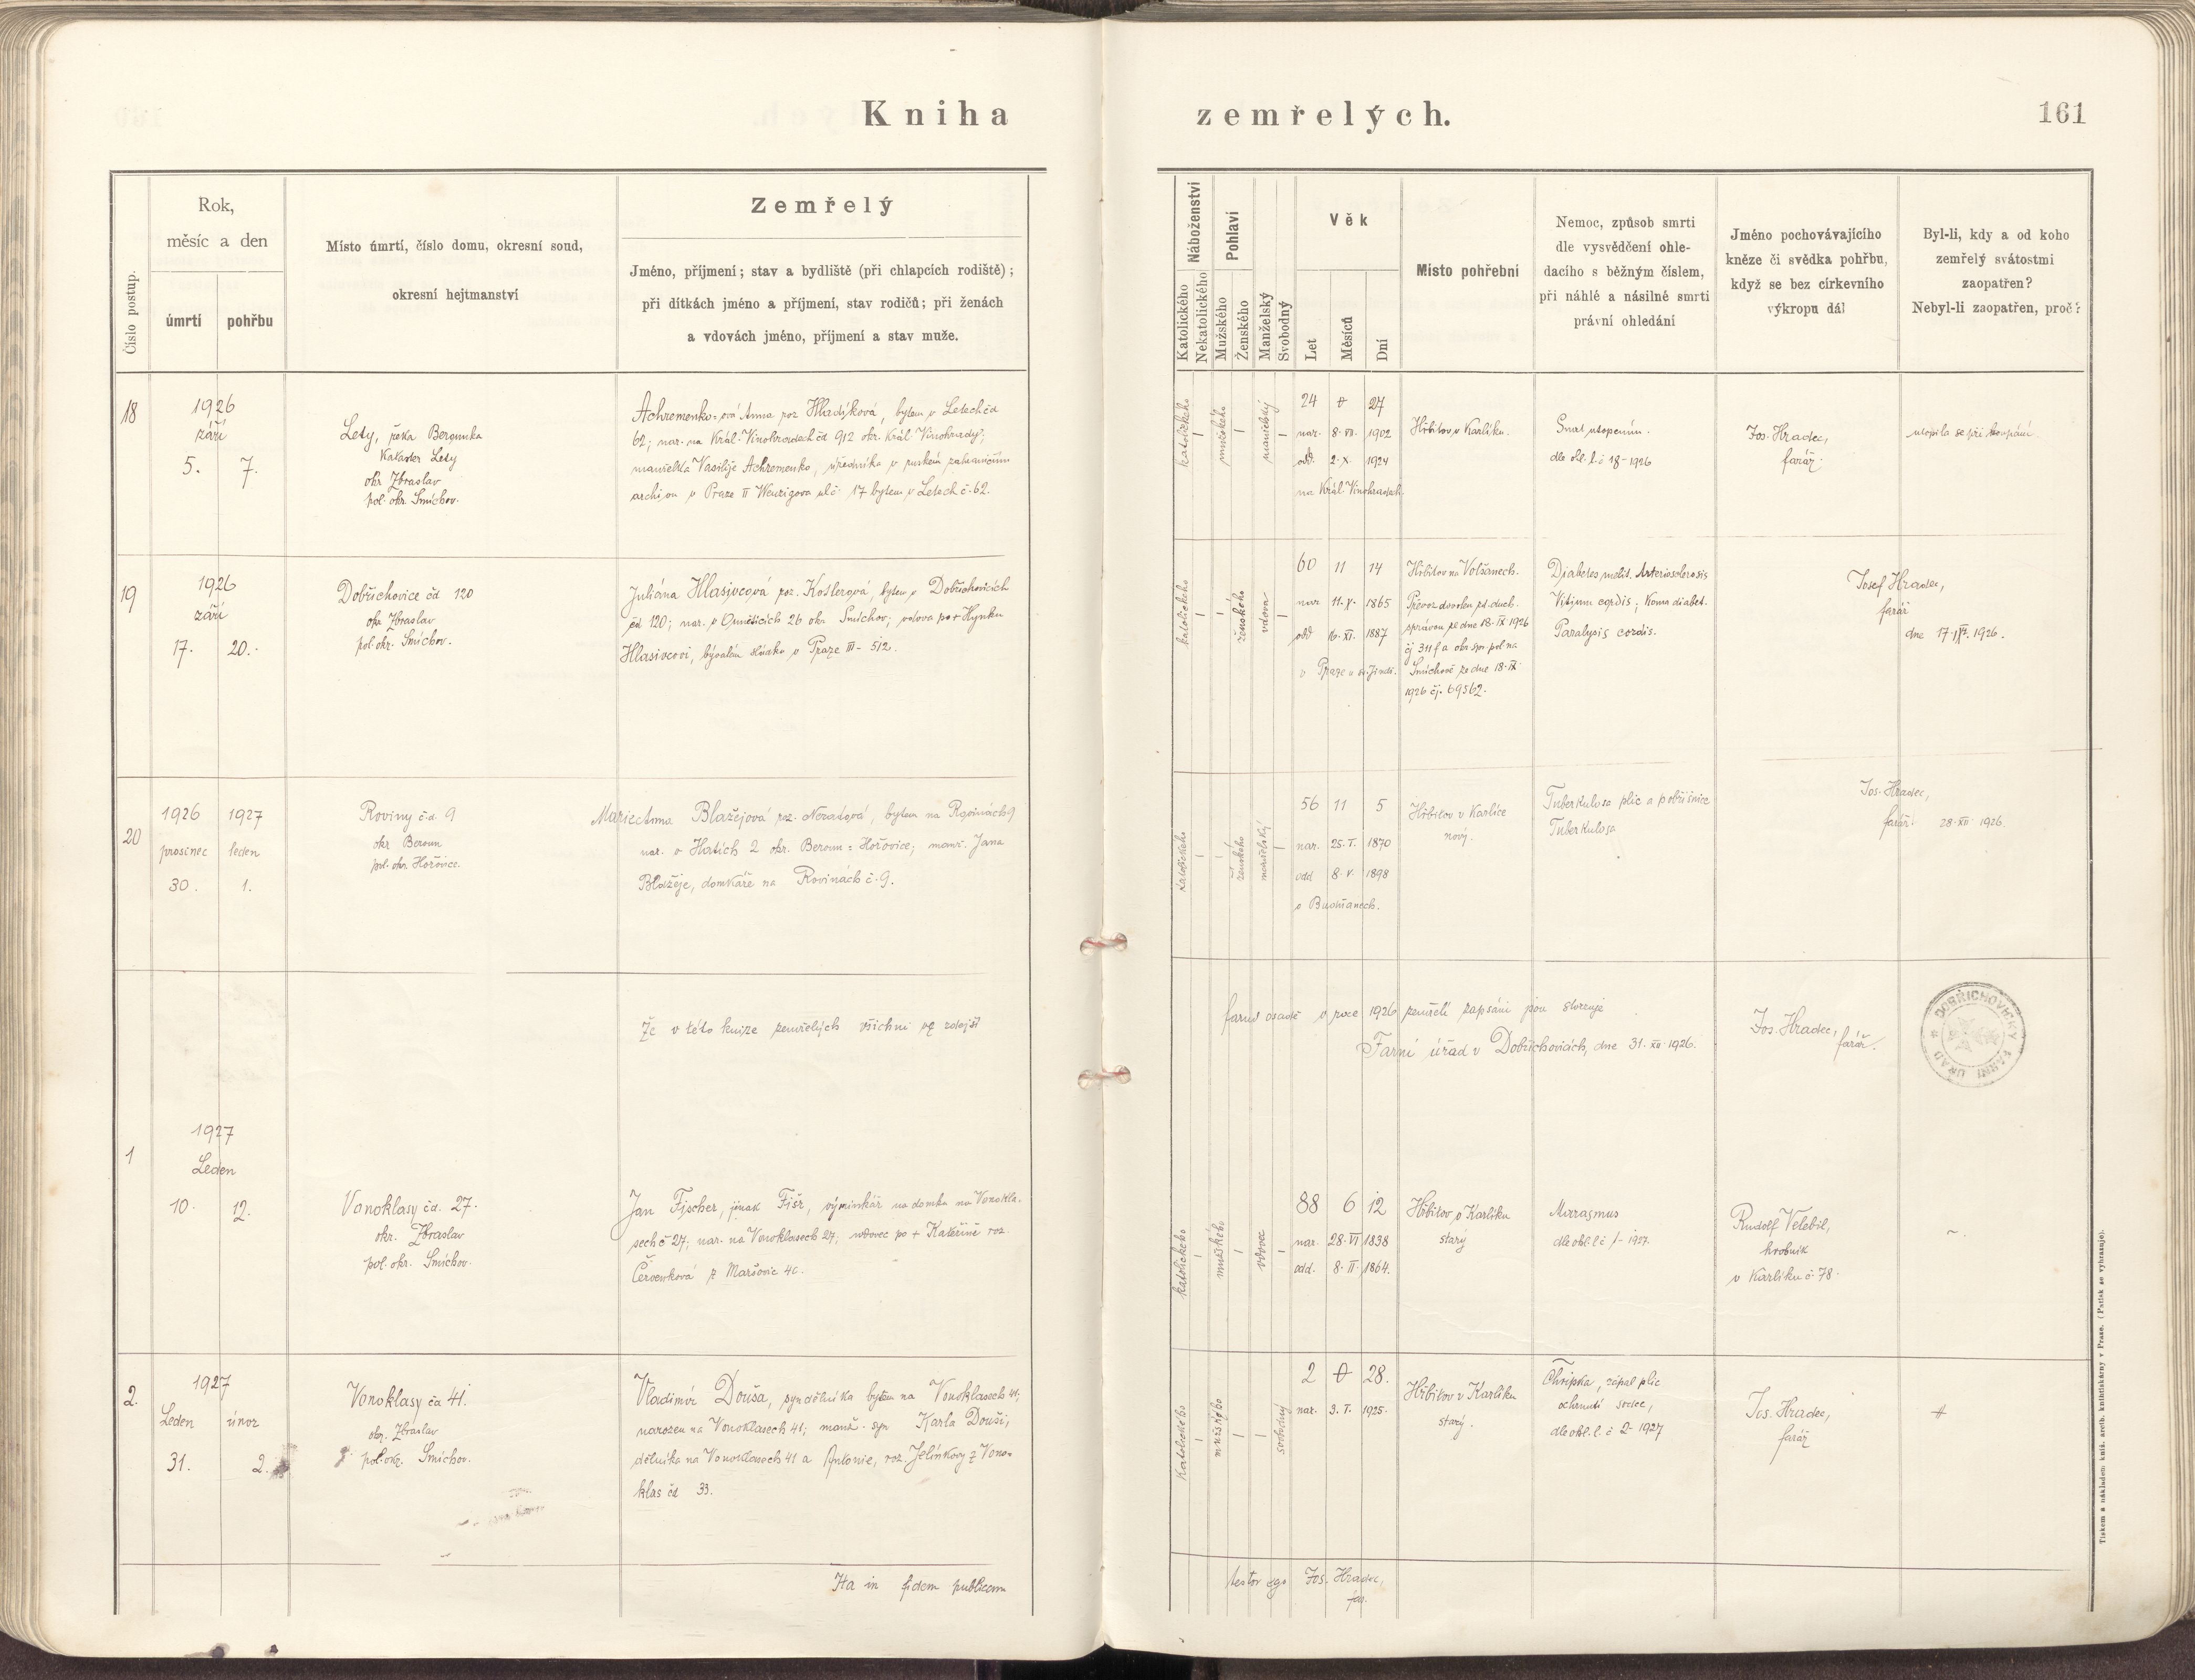 Kniha zemřelých.
161
Číslo postup.
Rok,
měsíc a den
úmrtí
pohřbu
Místo úmrtí, číslo domu, okresní soud,
okresní hejtmanství
Zemřelý
Jméno, příjmení; stav a bydliště (při chlapcích rodiště);
při dítkách jméno a příjmení, stav rodičů; při ženách
a vdovách jméno, příjmení a stav muže.
Náboženství
Katolického
Nekatolického
Pohlaví
Mužského
Ženského
Manželský
Svobodný
Věk
Let
Měsíců
Dní
Místo pohřební
Nemoc, způsob smrti
dle vysvědčení ohle-
dacího s běžným číslem,
při náhlé a násilné smrti
právní ohledání
Jméno pochovávajícího
kněze či svědka pohřbu,
když se bez církevního
výkropu dál
Byl-li, kdy a od koho
zemřelý svátostmi
zaopatřen?
Nebyl-li zaopatřen, proč?
18
1926
září
5. 7.
Lety, řeka Berounka
Kataster Lety
okr Zbraslav
pol. okr. Smíchov.
Achremenko-ová Anna roz Hladíková, bytem v Letech čd
62; nar. na Král. Vinohradech čd 912 okr. Král Vinohrady;
manželka Vasilije Achremenko, úředníka v ruském zahraničním
archivu v Praze II Wenzigova ul č 17 bytem v Letech č. 62.
katolického
mužského
manželský
24 0 27
nar. 8. VII. 1902
odd. 2. X. 1924
na Král. Vinohradech.
Hřbitov v Karlíku.
Smrt utopením.
dle ohl. l. č 18-1926
Jos. Hradec,
farář.
utopila se při koupání.
19
1926
září
17. 20.
Dobřichovice čd 120
okr Zbraslav
pol. okr. Smíchov.
Juliána Hlasivcová roz. Kotlerová, bytem v Dobřichovicích
čd 120; nar. v 26 okr Smíchov; vdova po + Hynku
Hlasivcovi, bývalém v Praze III - 512.
katolického
ženského
vdova
60 11 14
nar 11. X. 1865
odd 16. XI. 1887
v Praze u sv. Jindř.
Hřbitov na Volšanech.
Převoz dovolen od duch.
správou ze dne 18. IX 1926
čj 311 f a okr. spr. pol na
Smíchově ze dne 18. IX.
1926 čj. 69562.
Diabetes melit. Arteriosclerosis
Vitium cordis; Koma diabet.
Paralysis cordis.
Josef Hradec,
farář
dne 17. IX. 1926.
20
1926 1927
prosinec leden
30. 1.
Roviny č.d. 9
okr Beroun
pol. okr. Hořovice.
Marie Anna Blažejová roz. bytem na Rovinách 9
nar. v 2 okr. Beroun = Hořovice; manž. Jana
Blažeje, domkáře na Rovinách č. 9.
katolického
ženského
manželský
56 11 5
nar. 25. I. 1870
odd 8. V. 1898
v Budňanech.
Hřbitov v Karlíce
nový.
Tuberkulosa plic a pobřišnice
Tuberkulosa
Jos. Hradec,
farář.
28. XII 1926.
Že v této knize zemřelých všichni ve zdejší
farní osadě v roce 1926 zemřelí zapsáni jsou stvrzuje
Farní úřad v Dobřichovicích, dne 31. XII. 1926.
Jos. Hradec,
farář.
DOBŘICHOVICKÝ FARNÍ ÚŘAD
1
1927
Leden
10. 12.
Vonoklasy čd. 27.
okr. Zbraslav
pol. okr. Smíchov.
Jan Fischer, jinak Fišr, výminkář na domku na Vonokla-
sech č 27; nar. na Vonoklasech 27; vdovec po + Kateřině roz.
Červenková z Maršovic 40.
katolického
mužského
vdovec
88 6 12
nar. 28. VI 1838
odd. 8. II. 1864.
Hřbitov v Karlíku
starý
Marasmus
dle ohl. l. č 1-1927.
Rudolf Velebil,
hrobník
v Karlíku č. 78.
2.
1927
Leden únor
31. 2.
Vonoklasy čd 41.
okr. Zbraslav
pol. okr. Smíchov.
Vladimír Douša, syn dělníka bytem na Vonoklasech 41;
narozen na Vonoklasech 41; manž. syn Karla Douši,
dělníka na Vonoklasech 41 a Antonie, roz. Jelínkovy z Vono-
klas čd 33.
katolického
mužského
svobodný
2 0 28.
nar. 3. I. 1925.
Hřbitov v Karlíku
starý.
Chřipka, zápal plic
ochrnutí srdce,
dle ohl. l. č 2-1927
Jos. Hradec,
farář
Ita in fidem publicam
testor ego Jos. Hradec,
far.
Tiskem a nákladem kníž. arcib. knihtiskárny v Praze. (Patisk se vyhrazuje).